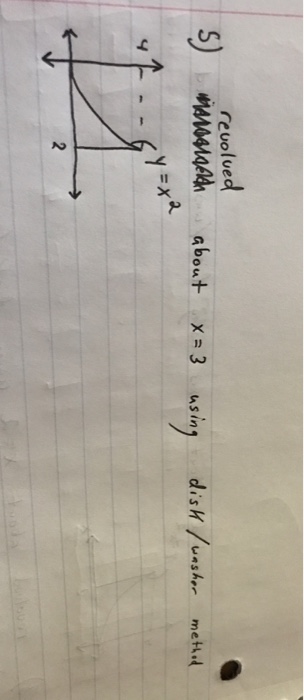 5) revolved about x = 3 using disk/washer method
y = x²
4
2